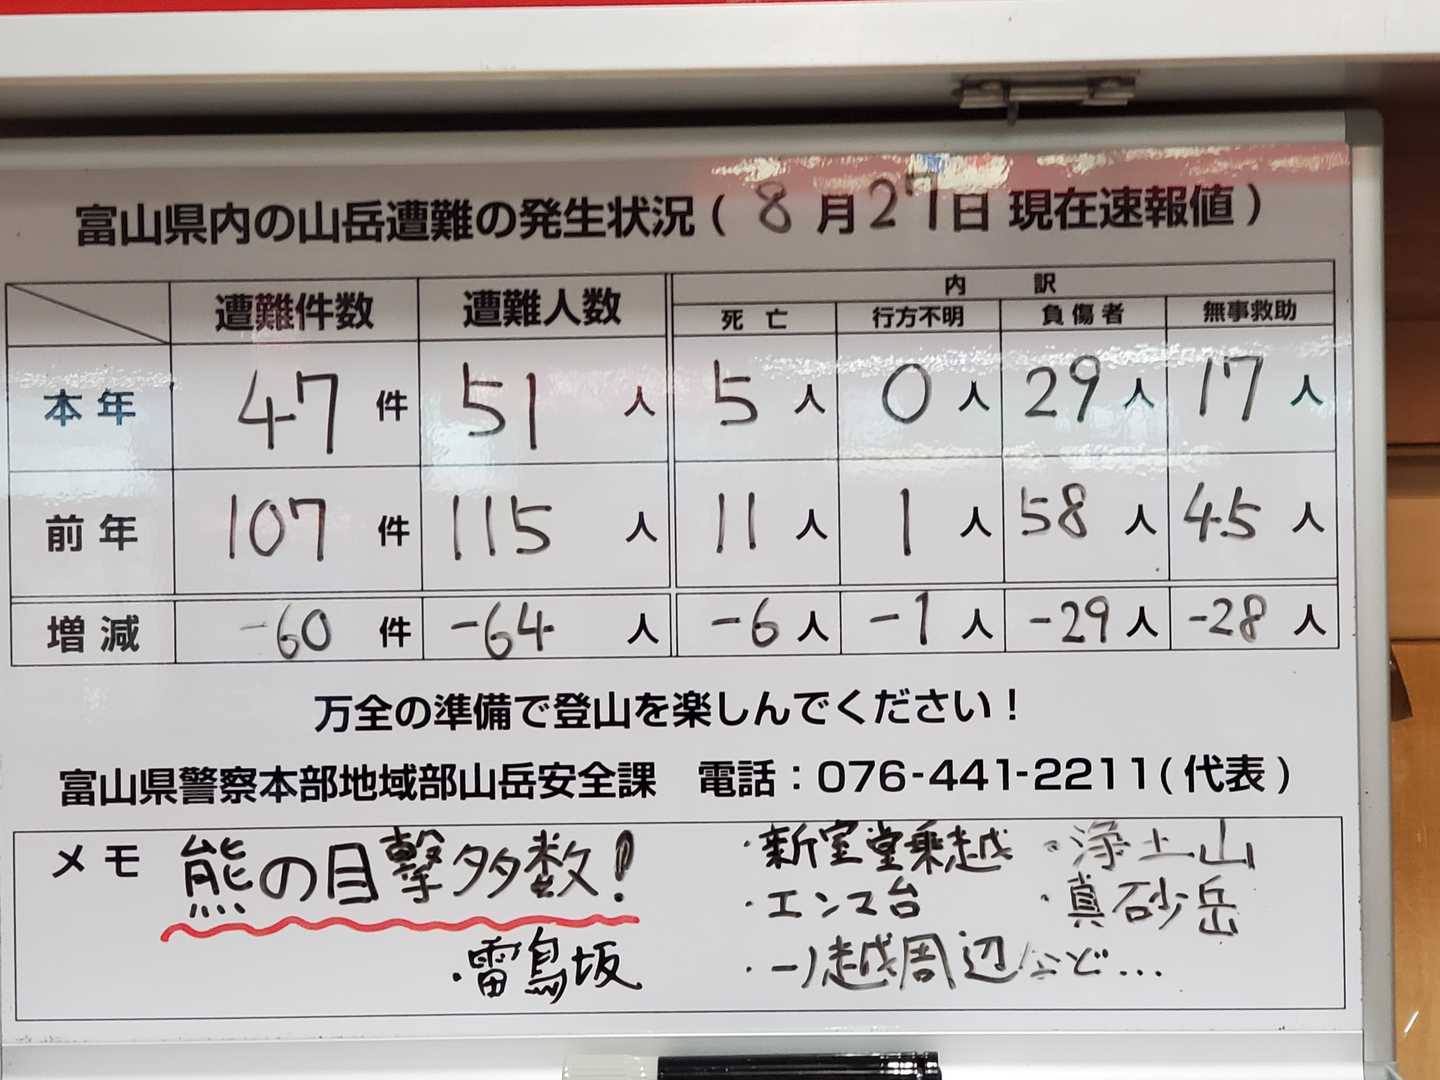 富山県内の山岳遭難の発生状況( 8月27日 現在速報値 )
遭難件数 遭難人数 内訳
死亡 行方不明 負傷者 無事救助
本年 47件 51人 5人 0人 29人 17人
前年 107件 115人 11人 1人 58人 45人
増減 -60件 -64人 -6人 -1人 -29人 -28人
万全の準備で登山を楽しんでください！
富山県警察本部地域部山岳安全課 電話：076-441-2211(代表)
メモ 熊の目撃多数！
・雷鳥坂
・新室堂乗越 ・浄土山
・エンマ台 ・真砂岳
・一ノ越周辺など…